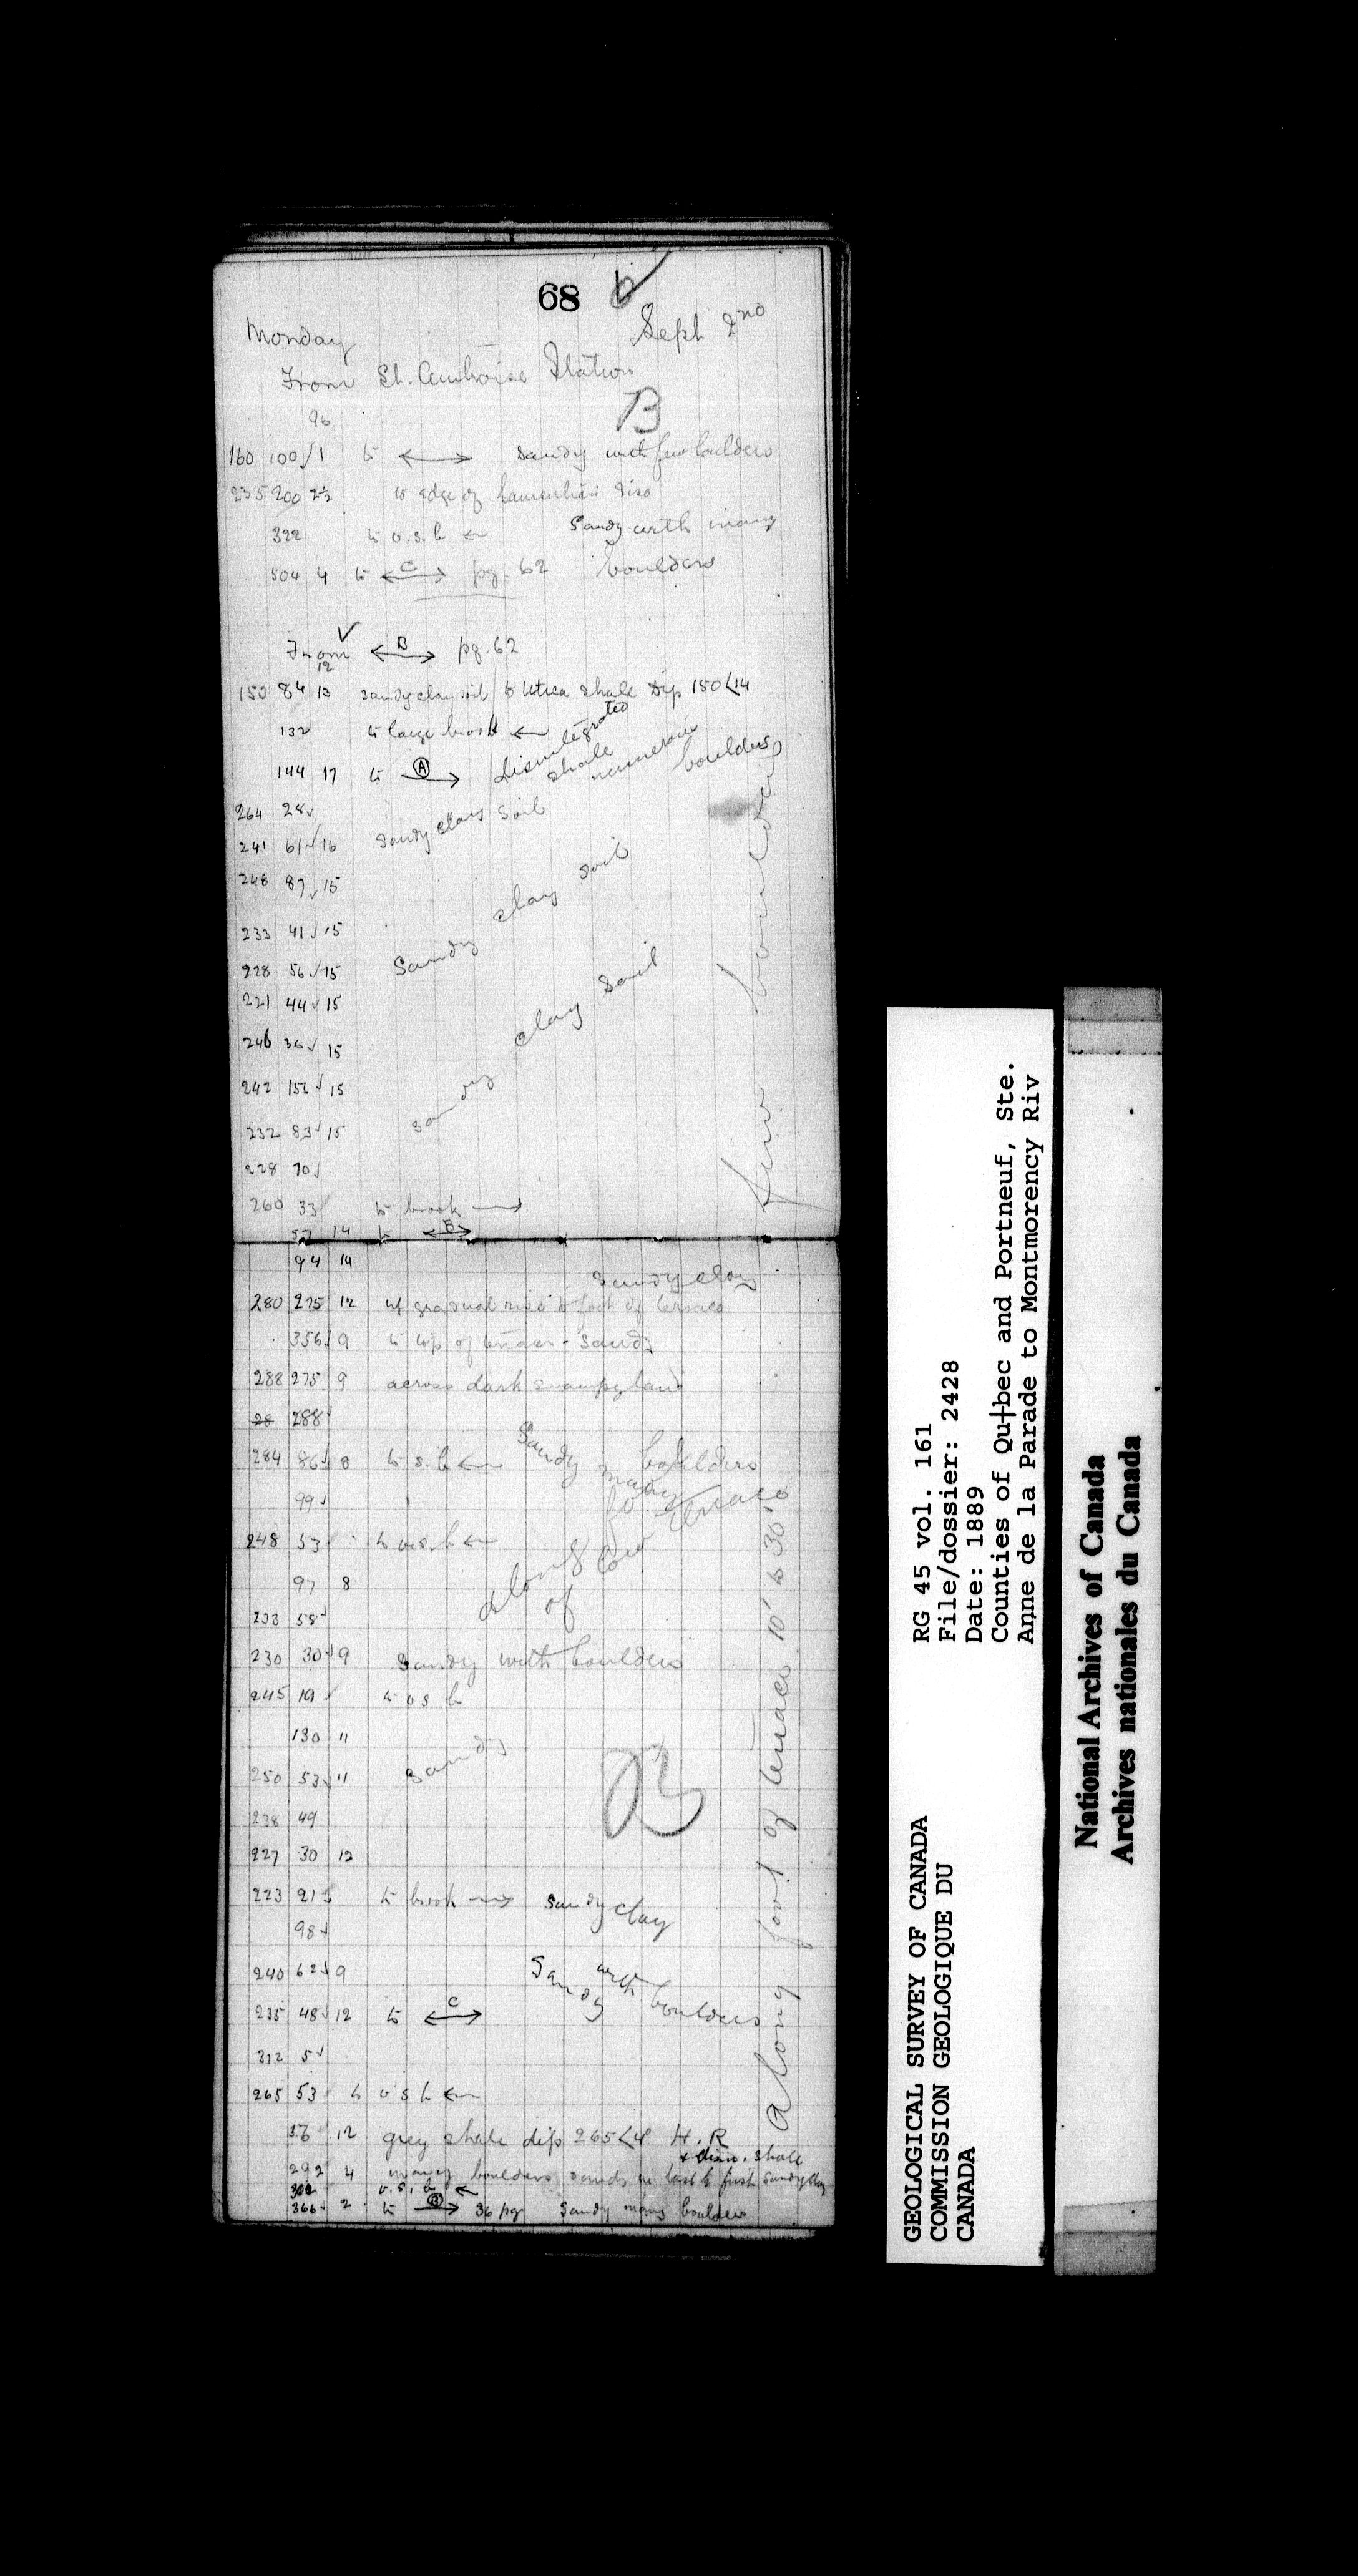 68
Monday Sept 2nd
From St. Ambroise Station
96 B
160 100 / 1 to ↔ sandy with few boulders
235 200 2½ to edge of Laurentian rise
322 to v.s.b ← Sandy with many
504 4 to ↔ C pg. 62 boulders
From ↔ B pg. 62
12
150 84 13 sandy clay soil / to Utica Shale Dip 150<14
132 to large brook ← disintegrated
144 17 to Ⓐ → shale numerous boulders
264 28
241 61 16 sandy clay soil
248 87 15
233 41 15 Sandy clay soil
228 56 15
221 44 15
246 36 15
242 152 15 sandy clay soil
232 83 15
228 70
260 33 to brook →
57 14 to ↔ B
few boulders
94 14 sandy clay
280 275 12 w/ gradual rise to foot of terrace
356 9 to top of terrace - Sandy
288 275 9 across dark swampy land
28 288
284 86 8 to s.b ← Sandy many boulders
99
248 53 to v.s.b ←
97 8 along foot of low terrace
233 58
230 30 9 sandy with boulders
245 19 to v s b
130 11
250 53 11 sandy
238 49
227 30 12
223 21 to brook → sandy clay
98
240 62 9 Sandy with boulders
235 48 12 to ↔ C
312 5
265 53 to v s b ←
56 12 grey shale dip 265<4 H.R
+ disin. shale
292 4 many boulders sandy in last to first sandy clay
302 v.s.b ←
366 2 to Ⓑ → 36 pg Sandy many boulders
along foot of terrace 10' to 30'
B
RG 45 vol. 161
File/dossier: 2428
Date: 1889
Counties of Qu†bec and Portneuf, Ste.
Anne de la Parade to Montmorency Riv
GEOLOGICAL SURVEY OF CANADA
COMMISSION GEOLOGIQUE DU
CANADA
National Archives of Canada
Archives nationales du Canada